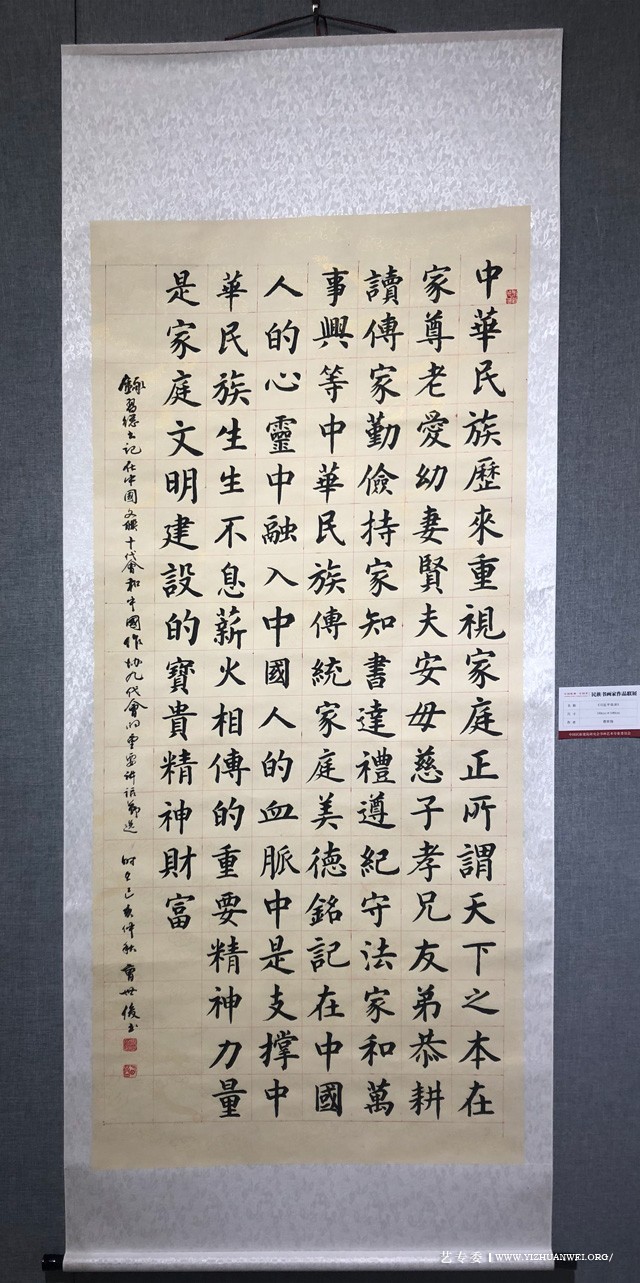 中華民族歷來重視家庭正所謂天下之本在
家尊老愛幼妻賢夫安母慈子孝兄友弟恭耕
讀傳家勤儉持家知書達禮遵紀守法家和萬
事興等中華民族傳統家庭美德銘記在中國
人的心靈中融入中國人的血脈中是支撐中
華民族生生不息薪火相傳的重要精神力量
是家庭文明建設的寶貴精神財富
錄習總書記在中國文聯十代會和中國作協九代會的重要講話節選 時在己亥仲秋 曾世俊書
民族书画家作品联展
艺专委 | WWW.YIZHUANWEI.ORG/